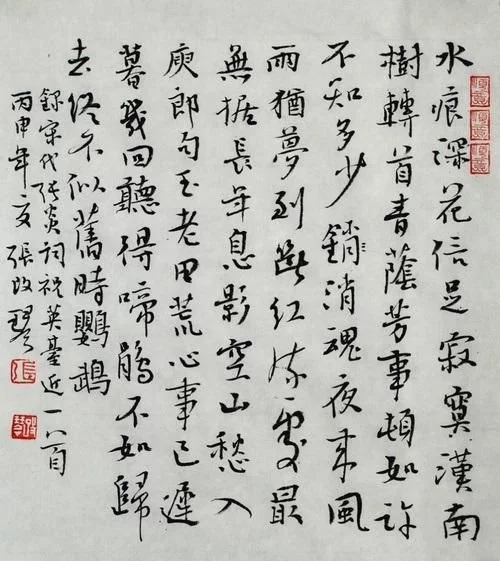 水痕深花信足寂寞漢南
樹轉首青蔭芳事頓如许
不知多少銷消魂夜来風
雨猶夢到斷紅流處最
無据長年息影空山愁入
庾郎句玉老田荒心事已遲
暮幾回聽得啼鵑不如歸
去終不似舊時鸚鵡
錄宋代张炎词祝英臺近一首
丙申年夏張改琴
張